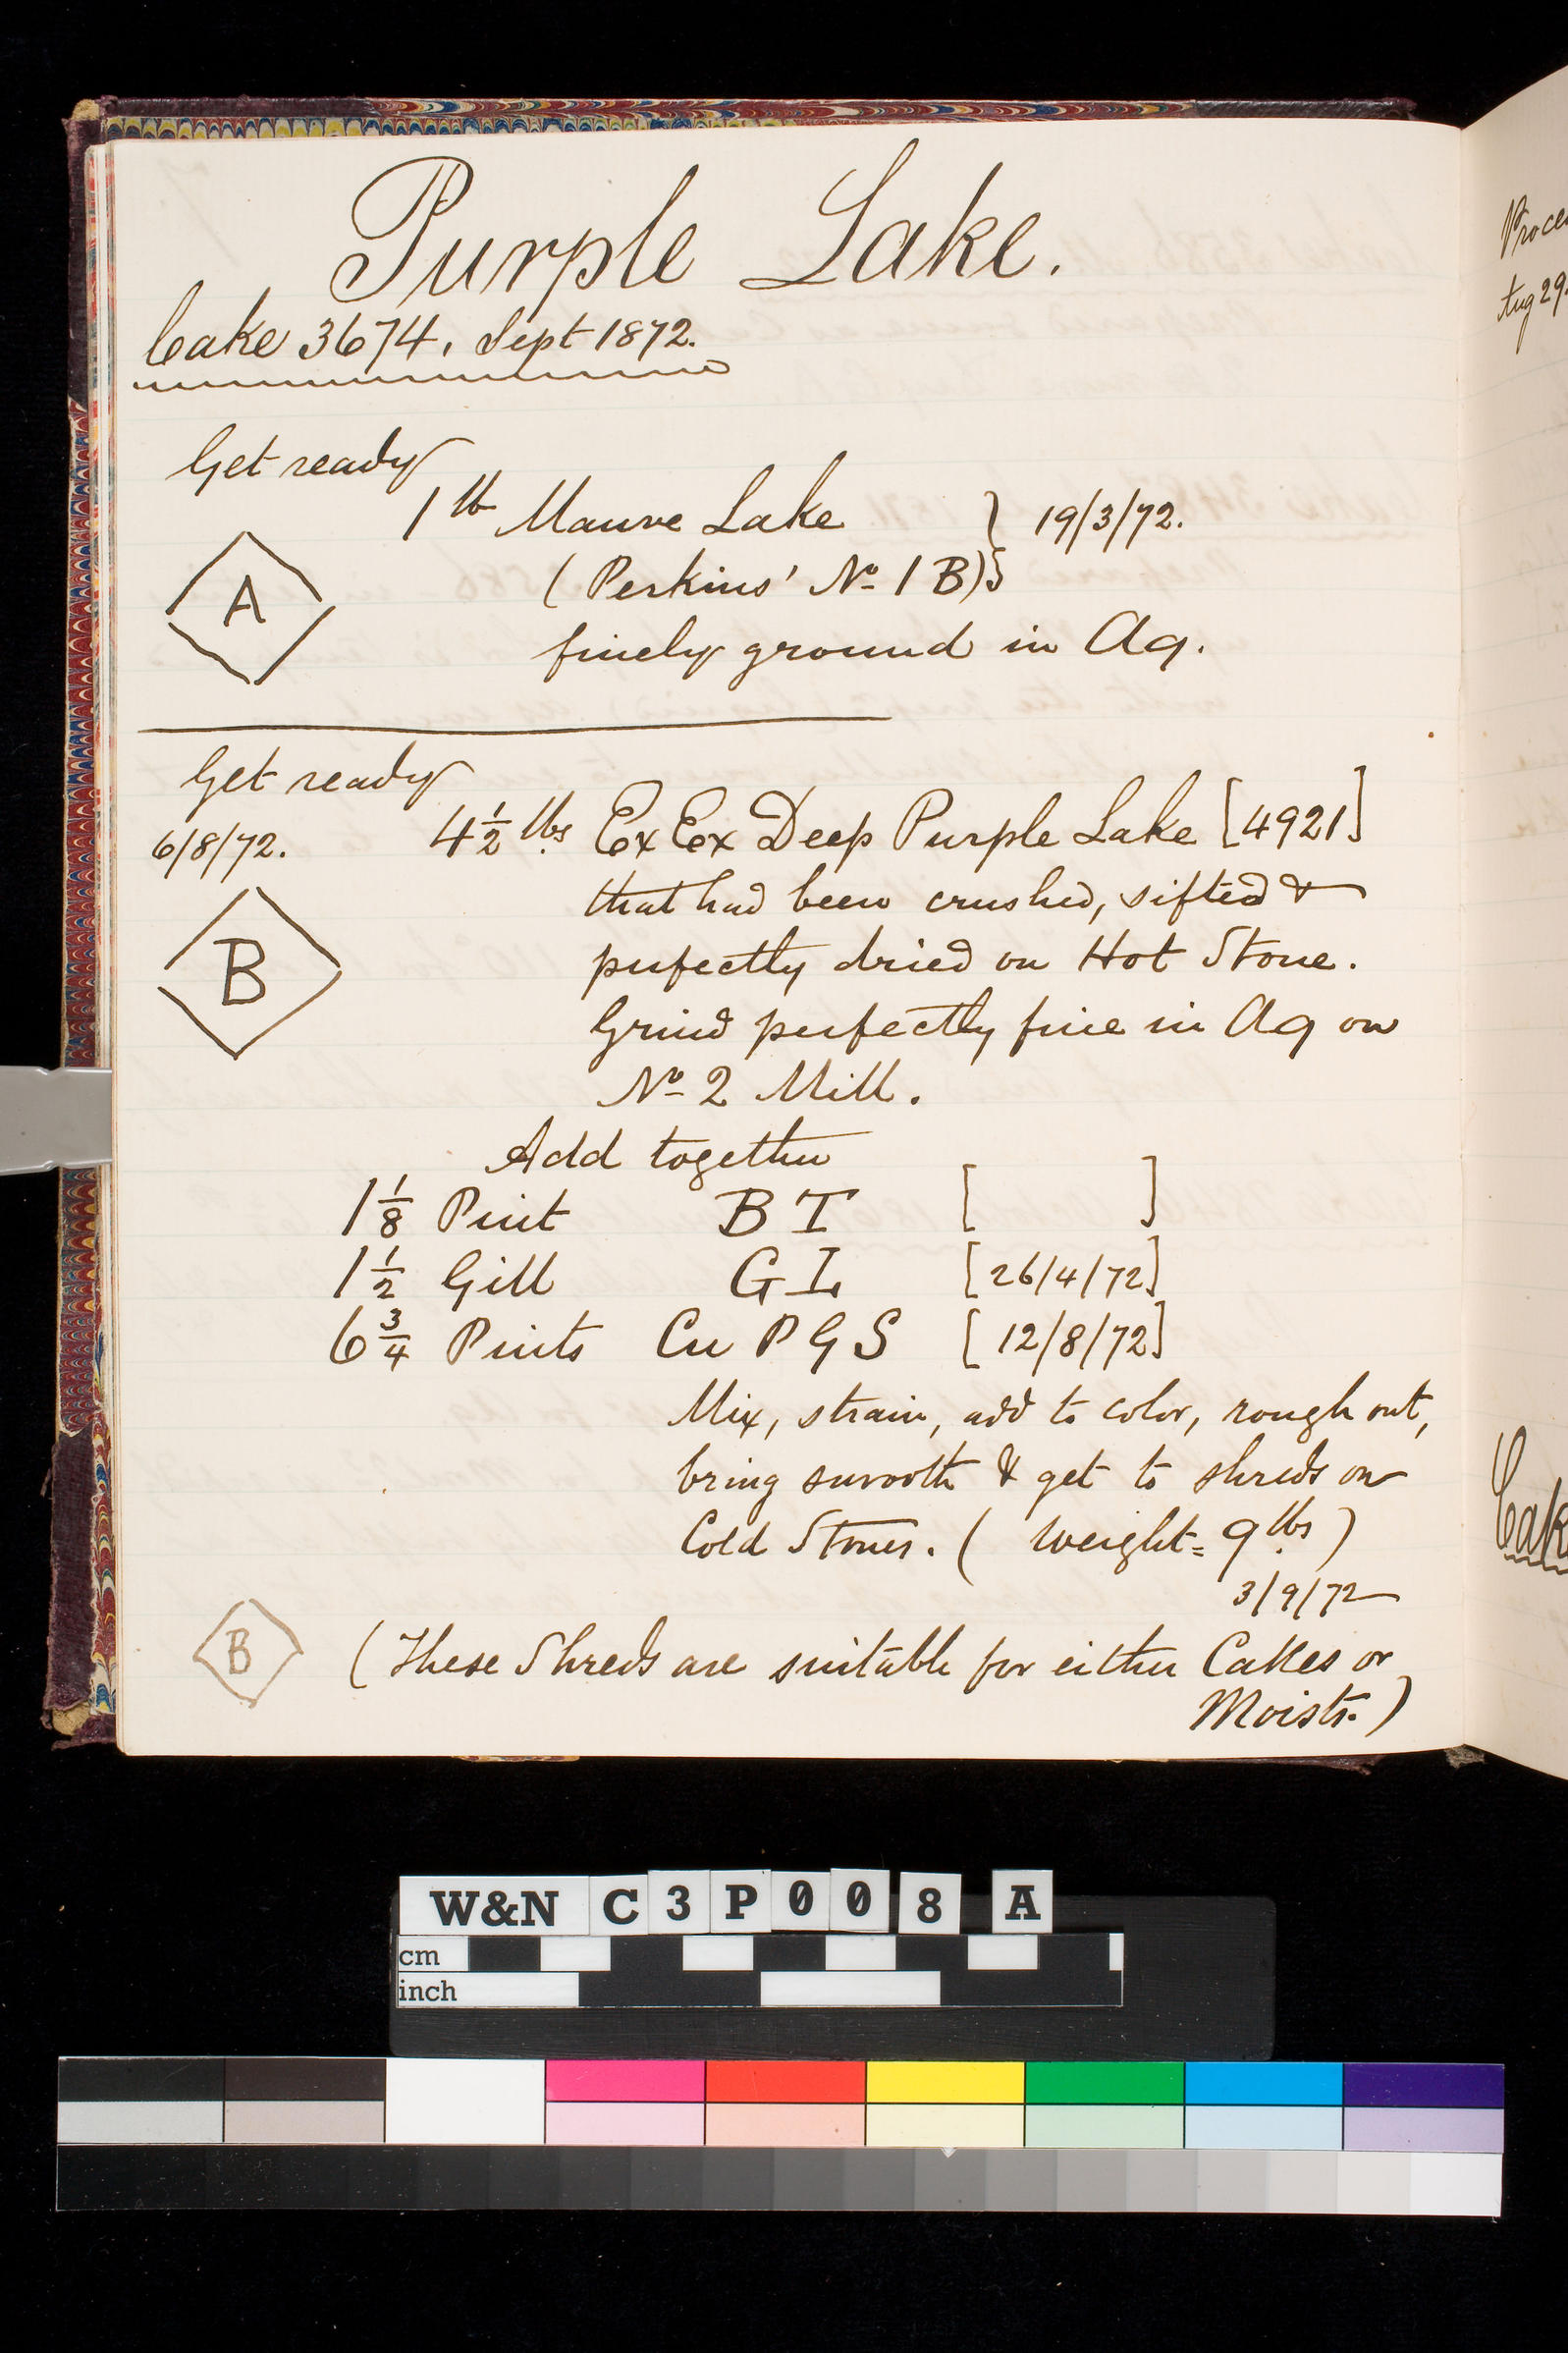 Purple Lake.
Cake 3674, Sept 1872.
Get ready
1 lb Mauve Lake } 19/3/72.
(Perkins' No 1 B)}
A
finely ground in Aq.
Get ready
6/8/72. 4 1/2 lbs Ex Ex Deep Purple Lake [4921]
that had been crushed, sifted &
perfectly dried on Hot Stone.
B
Grind perfectly fine in Aq on
No 2 Mill.
Add together
1 1/8 Pint B T [ ]
1 1/2 Gill G I [26/4/72]
6 3/4 Pints Cu P G S [12/8/72]
Mix, strain, add to color, rough out,
bring smooth & get to shreds on
Cold Stones. ( Weight = 9 lbs )
3/9/72
B (These Shreds are suitable for either Cakes or
Moists.)
Aug 29
W&N C3P008 A
cm
inch